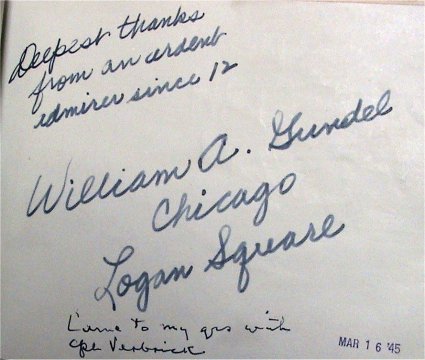 Deepest thanks
from an ardent
admirer since 12
William A. Gundel
Chicago
Logan Square
Came to my qrs with
Cpl Verbrick
MAR 16 '45